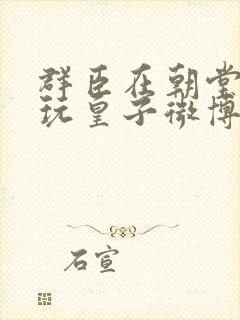 群臣在朝堂
玩皇子微博
石宣